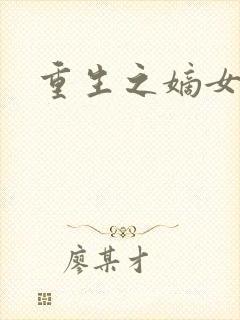 重生之嫡女
廖某才